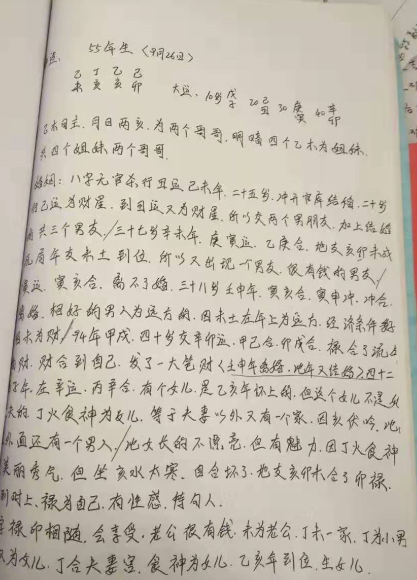 55年生（9月26日）
乙 丁 乙 己
未 亥 亥 卯 大运：10岁戊子 20己丑 30庚寅 40辛卯
乙木日主，月日两亥，为两个哥哥，明暗四个乙木为姐妹，
共四个姐妹两个哥哥。
婚姻：八字无官杀，行丑运己未年，二十五岁，冲开官库结婚，二十岁
行己运为财星，到丑运又为财星，所以交两个男朋友，加上结婚
共三个男友，/三十七岁辛未年，庚寅运，乙庚合，地支亥卯未成
局，周年支未土到位，所以又出现一个男友，很有钱的男友/
寅运，寅亥合，离不了婚，三十八岁壬申年，寅亥合，寅申冲，冲合
离婚，相好的男人为远方的，因未土在年上为远方，经济条件好
因未为财/94年甲戌，四十岁交辛卯运，甲己合，卯戌合，禄合了流年
财，财合到自己，发了一大笔财（壬申年离婚，此年又结婚）四十二
子年，在辛运，丙辛合，有个女儿，是乙亥年怀上的，但这个女儿不是
夫的，丁火食神为女儿，等于夫妻以外又有一个家，因亥伏吟，她
外面还有一个男人/此女长的不漂亮，但有魅力，因丁火食神
美丽秀气，但坐亥水太寒，四合坏了，地支亥卯未合了卯禄，
到时上，禄为自己，有性感，待句人。
禄印相随，会享受，老公很有钱，未为老公，丁未一家，丁为小男
为女儿，丁合夫妻宫，食神为女儿，乙亥年到位，生女儿。